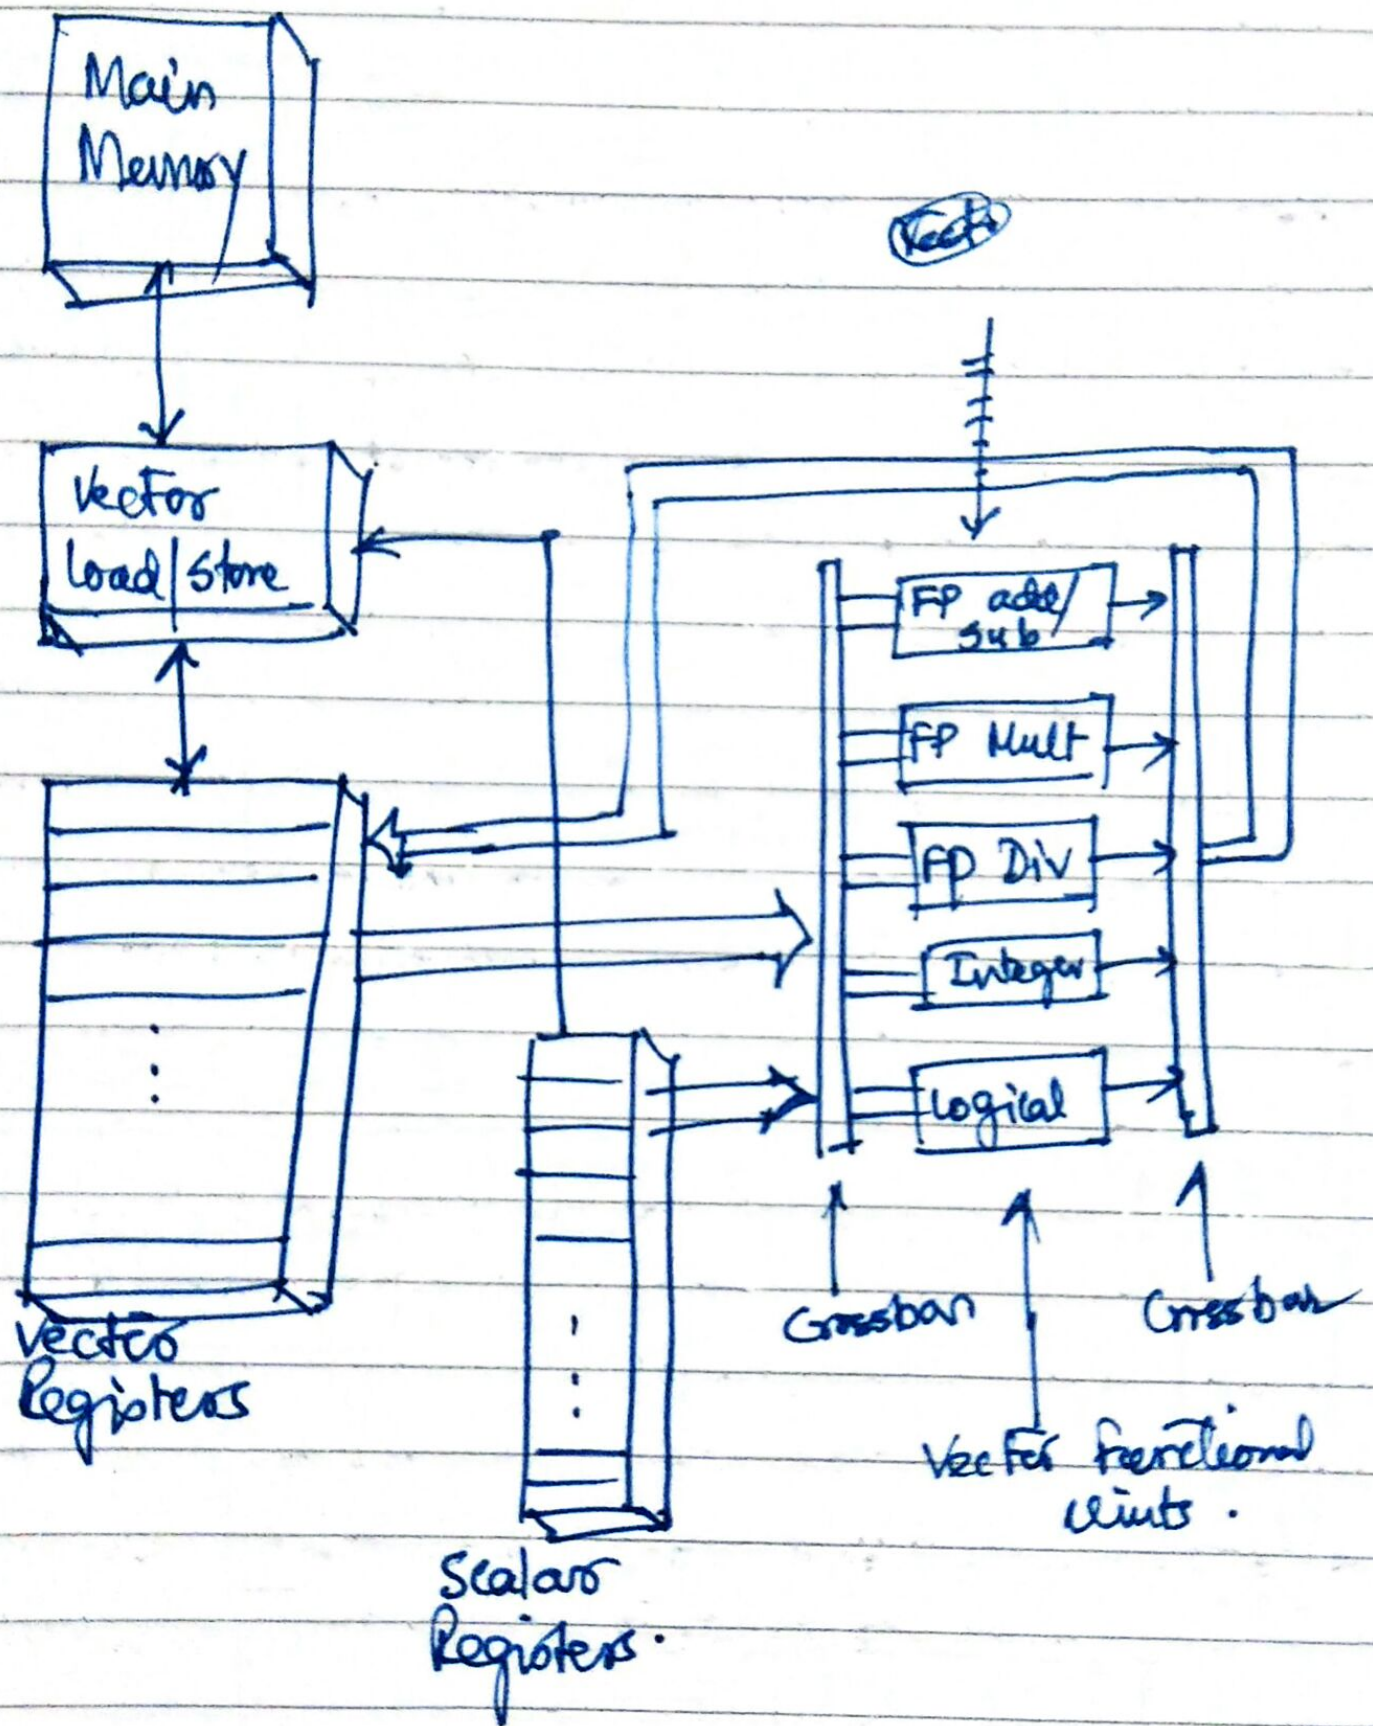 Main
Memory
Vector
Load/Store
FP add/
sub
FP Mult
FP Div
Integer
Logical
Vector
Registers
Crossbar
Crossbar
Vector functional
units.
Scalar
Registers.